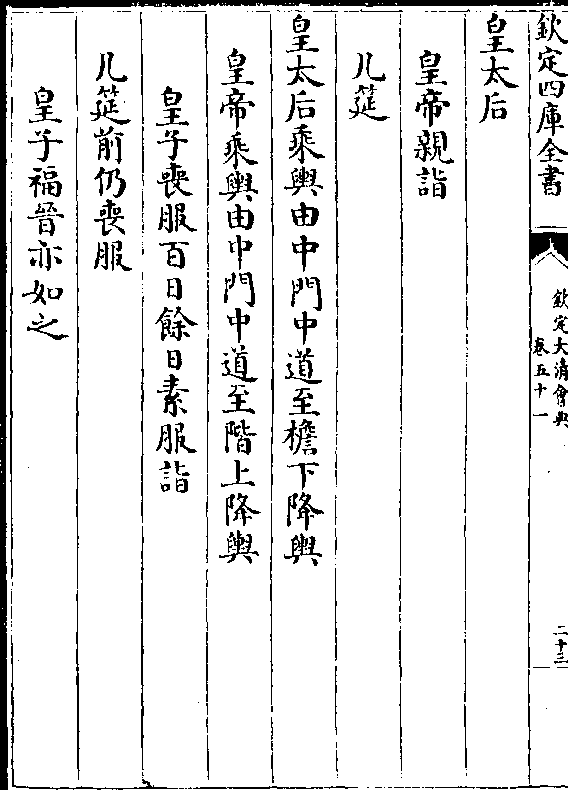 欽定四庫全書
欽定大清會典
卷五十一
二十三
皇太后
皇帝親詣
几筵
皇太后乘輿由中門中道至檐下降輿
皇帝乘輿由中門中道至階上降輿
皇子喪服百日餘日素服詣
几筵前仍喪服
皇子福晉亦如之